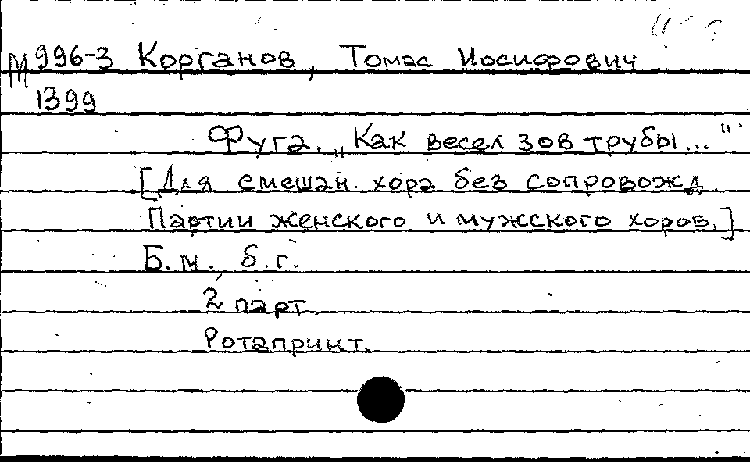 М 996-3 Корганов, Томас Иосифович
1399
Фуга. „Как весел зов трубы..."
[Для смешан. хора без сопровожд.
Партии женского и мужского хоров.]
Б.м., б.г.
2 парт.
Ротапринт.